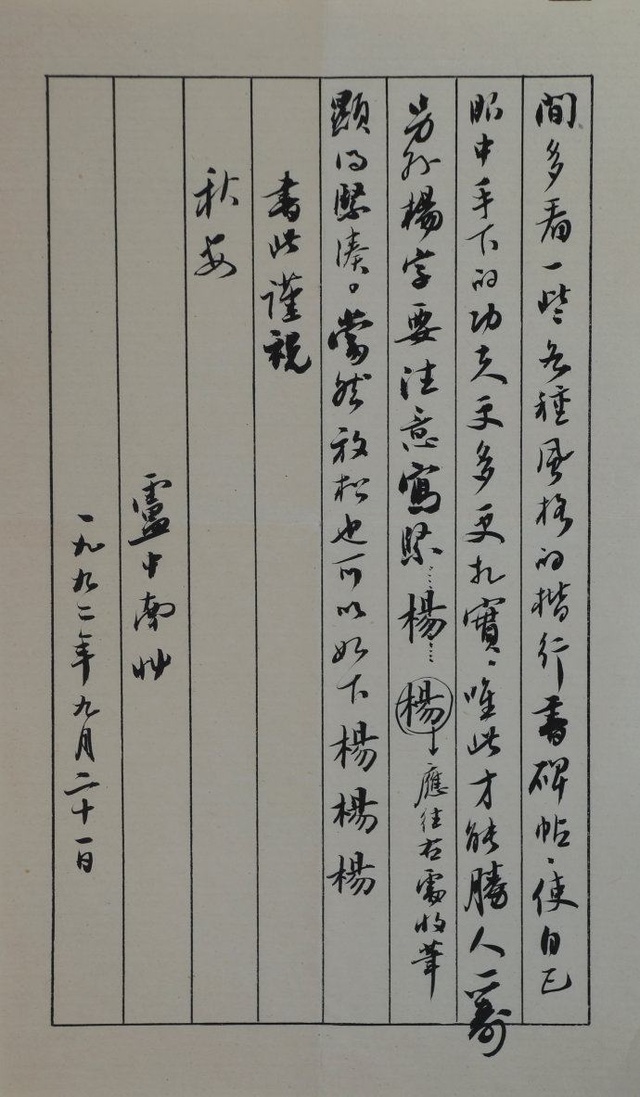 間多看一些各種風格的楷行書碑帖，使自己
眼中手下的功夫更多更扎實，唯此才能勝人一籌
另外楊字要注意寫緊……楊……楊→應往右靈收筆
顯得緊湊。當然放松也可以如下楊楊楊
書此謹祝
秋安
盧中南
一九九二年九月二十一日